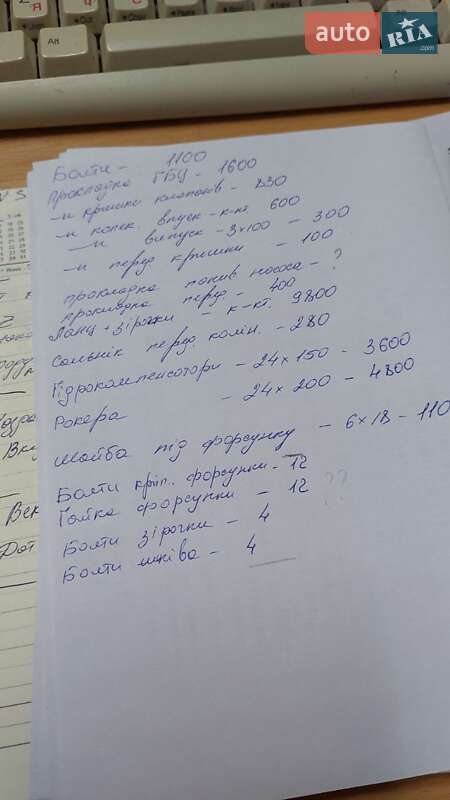 auto RIA .com
Я
Ч
С
Alt
Болти - 1100
Прокладка ГБЦ - 1600
-//- кришки клапанів - 830
-//- колек. впуск - к-кт. 600
-//- випуск - 3х100 - 300
-//- перед кришки - 100
прокладка палив насоса - ?
прокладка перед - 400
Ланц + зірочки - к-кт. 9800
Сальнік перед. колін. - 280
Гідрокомпенсатори - 24х150 - 3600
Рокера - 24х200 - 4800
Шайба під форсунку - 6х18 - 110
Болти кріп. форсунки - 12
Гайка форсунки - 12 ??
Болти зірочки - 4
Болти шківа - 4